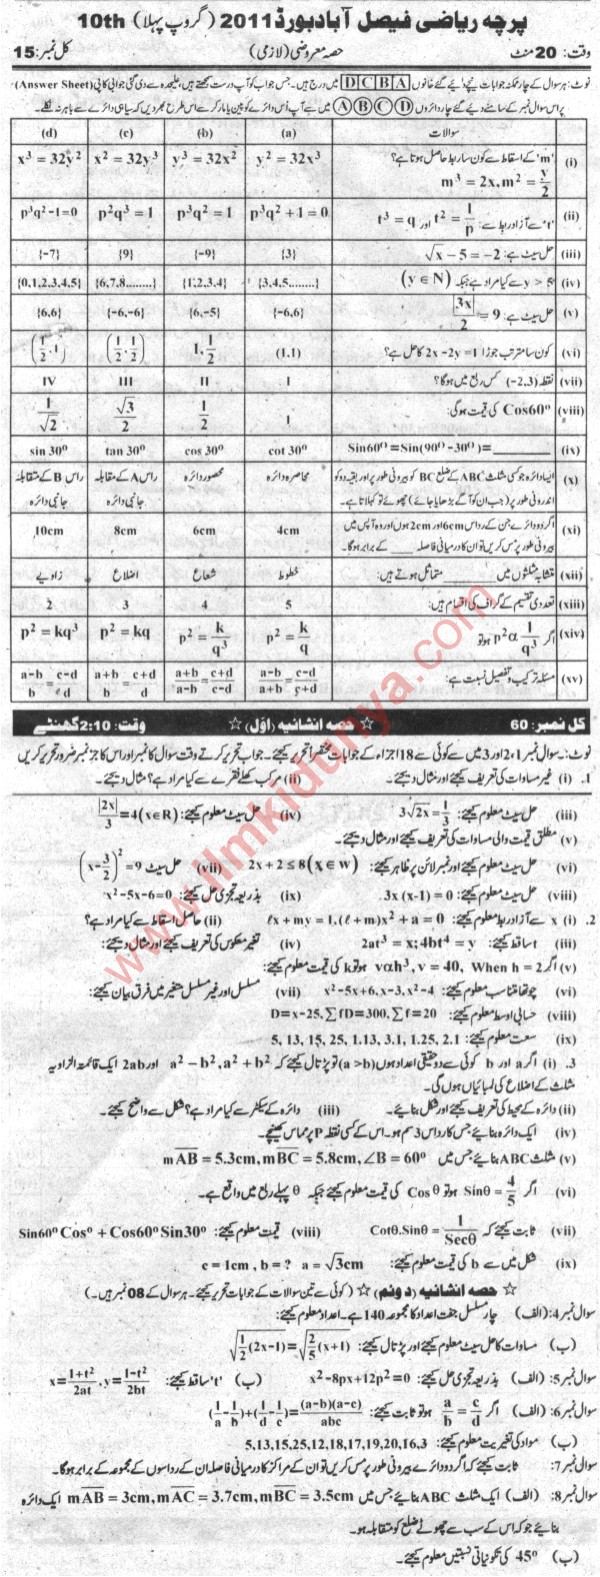 پرچہ ریاضی فیصل آباد بورڈ 2011 (گروپ پہلا) 10th
وقت: 20 منٹ حصہ معروضی (لازمی) کل نمبر: 15
نوٹ: ہر سوال کے چار ممکنہ جوابات نیچے دیئے گئے خانوں A B C D میں درج ہیں۔ جس جواب کو آپ درست سمجھتے ہیں، علیحدہ سے دی گئی جوابی کاپی (Answer Sheet)
پر اس سوال نمبر کے سامنے دیئے گئے چار دائروں A B C D میں سے آپ اُس دائرے کو پین یا مار کر سے اس طرح بھر دیں کہ سیاہی دائرے سے باہر نہ نکلے۔
سوالات (a) (b) (c) (d)
(i) 'm' کے اسقاط سے کون سا ربط حاصل ہوتا ہے؟ m³ = 2x, m² = y/2 y² = 32x³ y³ = 32x² x² = 32y³ x³ = 32y²
(ii) 't' سے آزاد ربط ہے: t² = 1/p اور t³ = q p³q² + 1 = 0 p³q² = 1 p²q³ = 1 p³q² - 1 = 0
(iii) حل سیٹ ہے: √x - 5 = -2 {3} {-9} {9} {-7}
(iv) y > 5 سے کیا مراد ہے جبکہ (y ∈ N) {3,4,5........} {1,2,3,4} {6,7,8........} {0,1,2,3,4,5}
(v) حل سیٹ ہے: |3x|/2 = 9 {-6,6} {6,-5} {-6,-6} {6,6}
(vi) کون سا مترتب جوڑا 2x - 2y = 1 کا حل ہے؟ (1,1) 1, 1/2 (1/2, 1/2) (1/2, 1)
(vii) نقطہ (-2,3) کس ربع میں ہوگا؟ I II III IV
(viii) Cos60° کی قیمت ہوگی: 1 1/2 √3/2 1/√2
(ix) Sin60° = Sin(90° - 30°) = ________ cot 30° cos 30° tan 30° sin 30°
(x) ایسا دائرہ جو کسی مثلث ABC کے ضلع BC کو بیرونی طور پر اور بقیہ دو کو اندرونی طور پر (جب ان کو آگے بڑھایا جائے) چھوئے تو کہلاتا ہے۔ محاصرہ دائرہ محصور دائرہ راس A کے مقابلہ جانبی دائرہ راس B کے متقابلہ جانبی دائرہ
(xi) اگر دو دائرے جن کے رداس 6cm اور 2cm ہوں اور وہ آپس میں بیرونی طور پر مس کریں تو ان کا درمیانی فاصلہ ____ کے برابر ہوگا۔ 4cm 6cm 8cm 10cm
(xii) متشابہ مثلثوں میں ________ متماثل ہوتے ہیں: خطوط شعاع اضلاع زاویے
(xiii) تعددی تقسیم کے گراف کی اقسام ہیں: 5 4 3 2
(xiv) اگر p² α 1/q³ ہو تو p² = k/q p² = k/q³ p² = kq p² = kq³
(xv) مسئلہ ترکیب و تفصیل نسبت ہے: a-b/a+b = c-d/c+d a+b/a-b = c+d/c-d a+b/b = c+d/d a-b/b = c-d/d
کل نمبر: 60 ☆ حصہ انشائیہ (اوّل) ☆ وقت: 2:10 گھنٹے
نوٹ: سوال نمبر 1، 2 اور 3 میں سے کوئی سے 18 اجزاء کے جوابات مختصراً تحریر کیجئے۔ جواب تحریر کرتے وقت سوال کا نمبر اور اس کا جز نمبر ضرور تحریر کریں
1. (i) غیر مساوات کی تعریف کیجئے اور مثال دیجئے۔ (ii) مرکب کھلے فقرے سے کیا مراد ہے؟ مثال دیجئے۔
(iii) حل سیٹ معلوم کیجئے: 3√2x = 1/3 (iv) حل سیٹ معلوم کیجئے: |2x|/3 = 4 (x∈R)
(v) مطلق قیمت والی مساوات کی تعریف کیجئے اور مثال دیجئے۔
(vi) حل سیٹ معلوم کیجئے اور نمبر لائن پر ظاہر کیجئے: 2x + 2 ≤ 8 (x ∈ w) (vii) حل سیٹ (x - 3/2)² = 9
(viii) حل سیٹ معلوم کیجئے: 3x (x-1) = 0. (ix) بذریعہ تجزی حل کیجئے: x² - 5x - 6 = 0
2. (i) x سے آزاد ربط معلوم کیجئے: ℓx + my = 1, (ℓ + m)x² + a = 0 (ii) حاصل اسقاط سے کیا مراد ہے؟
(iii) t ساقط کیجئے: 2at³ = x; 4bt⁴ = y (iv) تغیر معکوس کی تعریف کیجئے اور مثال دیجئے:
(v) اگر vαh³, v = 40, When h = 2 ہو تو k کی قیمت معلوم کیجئے:
(vi) چوتھا متناسب معلوم کیجئے: x² - 5x + 6, x - 3, x² - 4 (vii) مسلسل اور غیر مسلسل متغیر میں فرق بیان کیجئے:
(viii) حسابی اوسط معلوم کیجئے: D = x-25, ∑fD = 300, ∑f = 20
(ix) سعت معلوم کیجئے: 5, 13, 15, 25, 1.13, 3.1, 1.25, 2.1
3. (i) اگر a اور b کوئی سے دو حقیقی اعداد ہوں (a > b) تو پڑتال کیجئے کہ a² - b², a² + b² اور 2ab ایک قائمۃ الزاویہ
مثلث کے اضلاع کی لمبائیاں ہوں گی۔
(ii) دائرہ کے محیط کی تعریف کیجئے اور شکل بنائیے۔ (iii) دائرہ کے سیکٹر سے کیا مراد ہے؟ شکل سے واضح کیجئے:
(iv) ایک دائرہ بنائیے جس کا رداس 3 سم ہو۔ اس کے کسی نقطہ P پر مماس کھینچیے۔
(v) مثلث ABC بنائیے جس میں mAB = 5.3cm, mBC = 5.8cm, ∠B = 60°
(vi) اگر Sinθ = 4/5 ہو تو Cos θ کی قیمت معلوم کیجئے جبکہ θ پہلے ربع میں واقع ہے۔
(vii) ثابت کیجئے کہ Cotθ.Sinθ = 1/Secθ (viii) قیمت معلوم کیجئے: Sin60° Cos° + Cos60° Sin30°
(ix) شکل میں سے b کی قیمت معلوم کیجئے: c = 1cm, b = ? a = √3cm
☆ حصہ انشائیہ (دوئم) ☆ (کوئی سے تین سوالات کے جوابات تحریر کیجئے۔ ہر سوال کے 08 نمبر ہیں۔)
سوال نمبر 4: (الف) چار مسلسل جفت اعداد کا مجموعہ 140 ہے۔ اعداد معلوم کیجئے:
(ب) مساوات کا حل سیٹ معلوم کیجئے اور پڑتال کیجئے: √1/2(2x-1) = √2/5(x+1)
سوال نمبر 5: (الف) بذریعہ تجزی حل کیجئے: x² - 8px + 12p² = 0 (ب) 't' ساقط کیجئے: x = 1+t²/2at, y = 1-t²/2bt
سوال نمبر 6: (الف) اگر a/b = c/d ہو تو ثابت کیجئے: (1/a - 1/b) + (1/d - 1/c) = (a-b)(a-c)/abc
(ب) مواد کی تغیریت معلوم کیجئے: 5,13,15,25,12,18,17,19,20,16,3
سوال نمبر 7: ثابت کیجئے کہ اگر دو دائرے بیرونی طور پر مس کریں تو ان کے مراکز کا درمیانی فاصلہ ان کے رداسوں کے مجموعہ کے برابر ہوگا۔
سوال نمبر 8: (الف) ایک مثلث ABC بنائیے جس میں mAB = 3cm, mAC = 3.7cm, mBC = 3.5cm ایک دائرہ
بنائیے جو کہ اس کے سب سے چھوٹے ضلع کو متقابلہ ہو۔
(ب) 45° کی تکونیاتی نسبتیں معلوم کیجئے۔
www.ilmkidunya.com